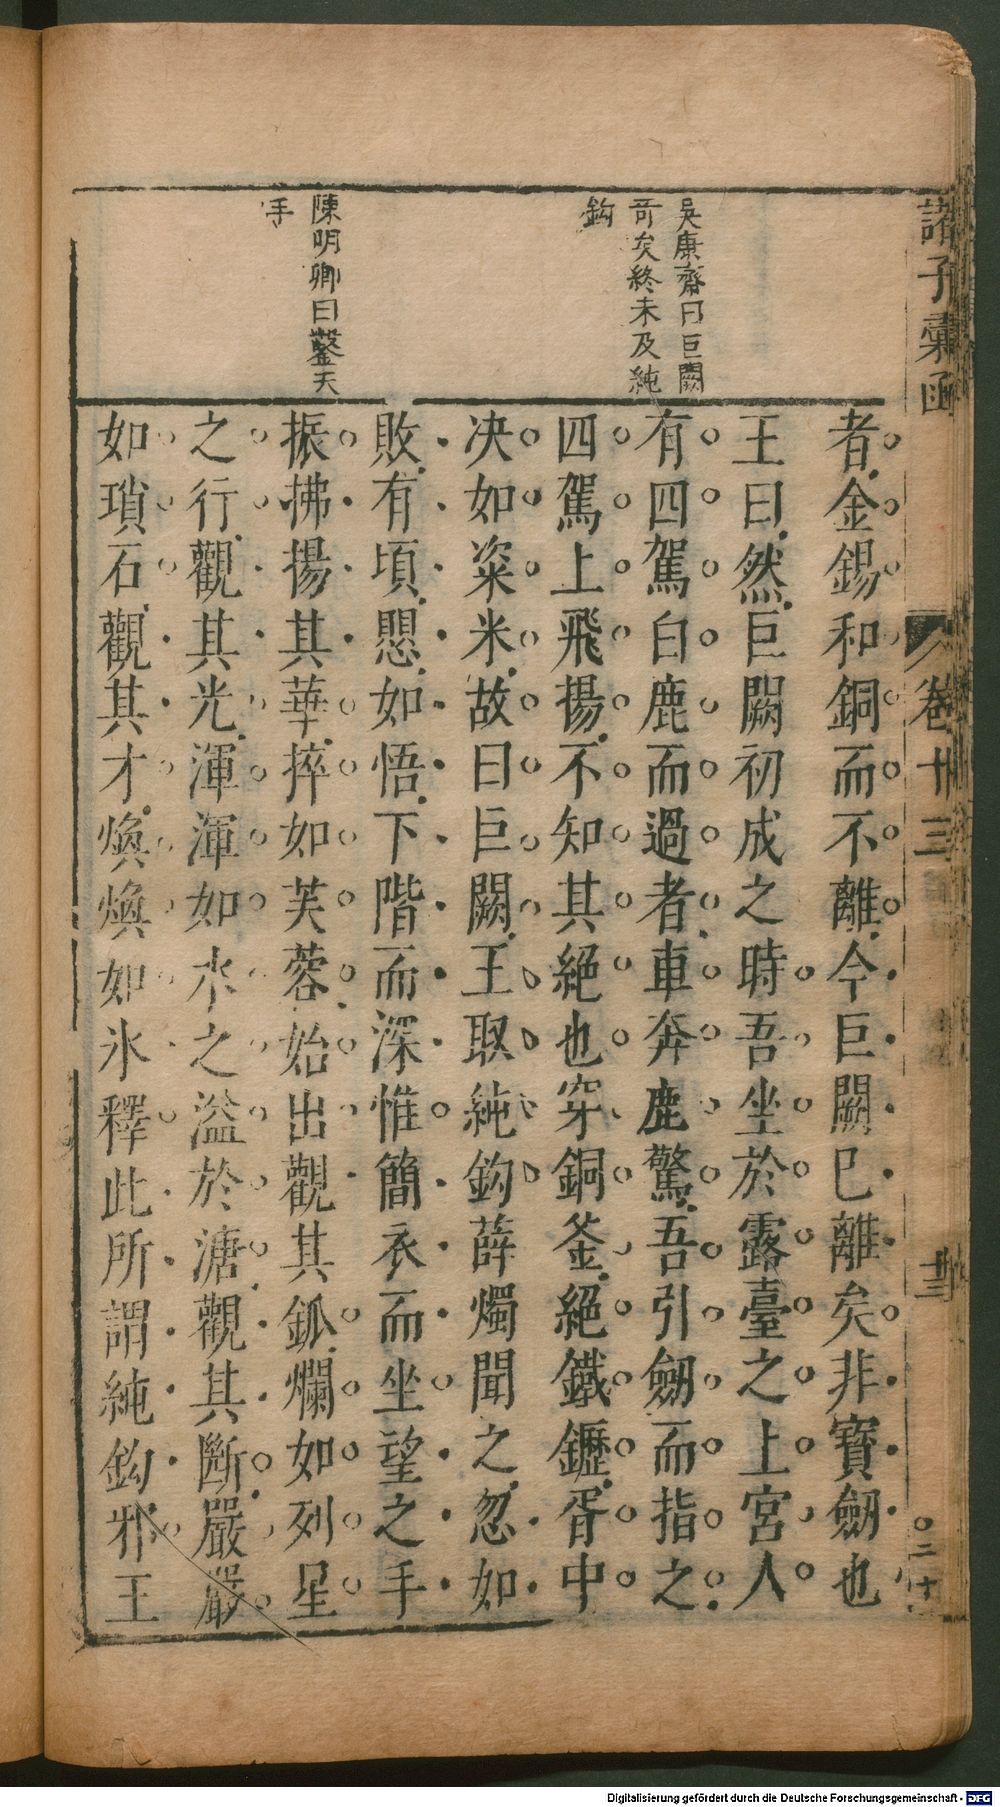 諸子彙函
卷十三
吳康齋曰巨闕
奇矣終未及純
鈎
陳明卿曰鑿天
手
者金錫和銅而不離今巨闕已離矣非寶劒也
王曰然巨闕初成之時吾坐於露臺之上宮人
有四駕白鹿而過者車奔鹿驚吾引劒而指之
四駕上飛揚不知其絕也穿銅釜絕鐵鑪胥中
決如粢米故曰巨闕王取純鈎薛燭聞之忽如
敗有頃思如悟下階而深惟簡衣而坐望之手
振拂揚其華捽如芙蓉始出觀其釽爛如列星
之行觀其光渾渾如水之溢於溏觀其斷巖巖
如瑣石觀其才煥煥如氷釋此所謂純鈎邪王
Digitalisierung gefördert durch die Deutsche Forschungsgemeinschaft - DFG